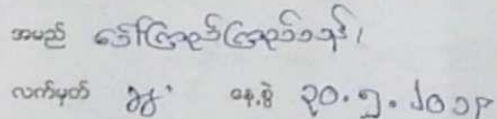 အမည် ဒေါ်ကြည်ကြည်ဝင်း၊
လက်မှတ် နေ့စွဲ ၃၀.၅.၂၀၁၉